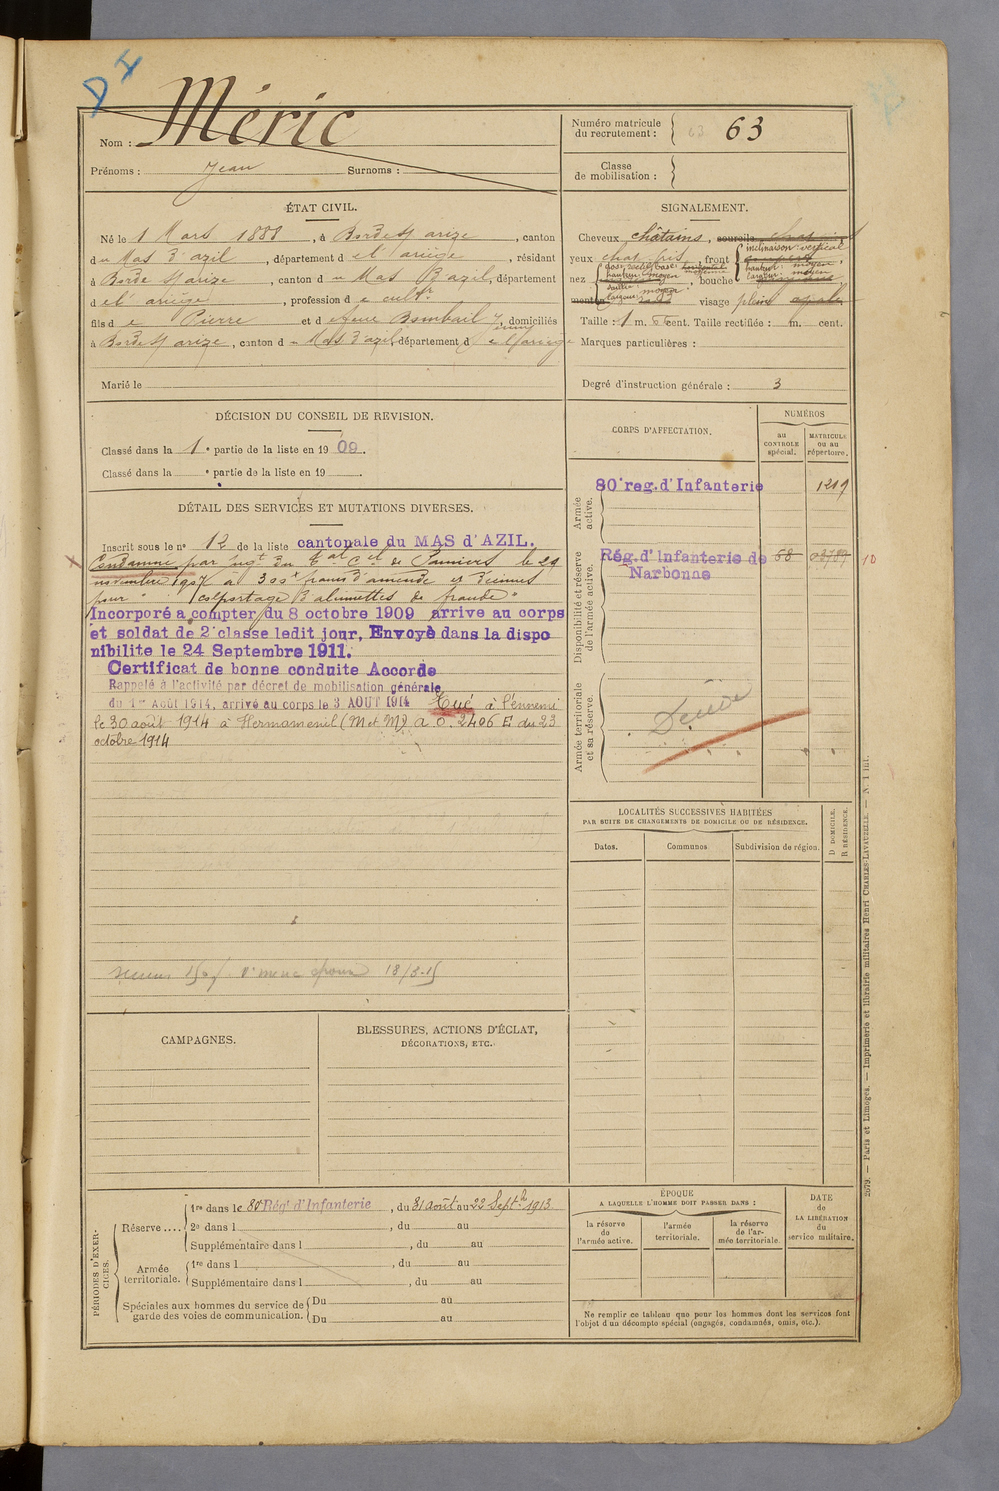 D I
Nom : Méric
Prénoms : Jean Surnoms :
Numéro matricule
du recrutement : 63
Classe
de mobilisation :
ÉTAT CIVIL.
Né le 1 Mars 1888, à Bordes s/ arize, canton
du Mas d'azil, département d el' ariège, résidant
à Borde s/ arize, canton d u Mas d'azil, département
d el' ariège, profession d e cultr
fils d e Pierre et d domiciliés
à Bordes s/ arize, canton d u Mas d'azil, département d e l'ariège
Marié le
SIGNALEMENT.
Cheveux châtains, sourcils
yeux chat gris, front inclinaison vertical
hauteur moyen
largeur moyen
nez dos rectil base horizontal
hauteur moyen
saillie moyen
largeur
bouche
menton visage plein ovale
Taille : 1 m. cent. Taille rectifiée : m. cent.
Marques particulières :
Degré d'instruction générale : 3
DÉCISION DU CONSEIL DE REVISION.
Classé dans la 1e partie de la liste en 1909.
Classé dans la e partie de la liste en 19 .
DÉTAIL DES SERVICES ET MUTATIONS DIVERSES.
Inscrit sous le no 12 de la liste cantonale du MAS d'AZIL.
Condamné par jugt du tal Cel de Pamiers le 29
novembre 1907 à 300f francs d'amende et décimes
pour "colportage d'allumettes de fraude"
Incorporé a compter du 8 octobre 1909 arrive au corps
et soldat de 2e classe ledit jour, Envoyé dans la dispo
nibilite le 24 Septembre 1911.
Certificat de bonne conduite Accorde
Rappelé à l'activité par décret de mobilisation générale
du 1er Août 1914, arrivé au corps le 3 AOUT 1914 Tué à l'ennemi
le 30 août 1914 à Hermamenil (M et M) a o. 2406 E du 23
octobre 1914
18/3-15
CORPS D'AFFECTATION.
NUMÉROS
au
CONTROLE
spécial.
MATRICULE
ou au
répertoire.
Armée
active.
80e reg. d'Infanterie 1219
Disponibilité et réserve
de l'armée active.
Rég. d'Infanterie de
Narbonne 68 03789 10
Armée territoriale
et sa réserve.
Décédé
LOCALITÉS SUCCESSIVES HABITÉES
PAR SUITE DE CHANGEMENTS DE DOMICILE OU DE RÉSIDENCE.
Dates. Communes. Subdivision de région. D. DOMICILE.
R. RÉSIDENCE.
CAMPAGNES.
BLESSURES, ACTIONS D'ÉCLAT,
DÉCORATIONS, ETC.
PÉRIODES D'EXER-
CICES.
Réserve....
1re dans le 80e Régt d'Infanterie, du 31 août au 22 Septbre 1913
2e dans l , du au
Supplémentaire dans l , du au
Armée
territoriale.
1re dans l , du au
Supplémentaire dans l , du au
Spéciales aux hommes du service de
garde des voies de communication.
Du au
Du au
ÉPOQUE
A LAQUELLE L'HOMME DOIT PASSER DANS :
la réserve
de
l'armée active.
l'armée
territoriale.
la réserve
de l'ar-
mée territoriale.
DATE
de
LA LIBÉRATION
du
service militaire.
Ne remplir ce tableau que pour les hommes dont les services font
l'objet d'un décompte spécial (engagés, condamnés, omis, etc.).
2679. — Paris et Limoges. — Imprimerie et librairie militaires Henri CHARLES-LAVAUZELLE. — N. 1 int.